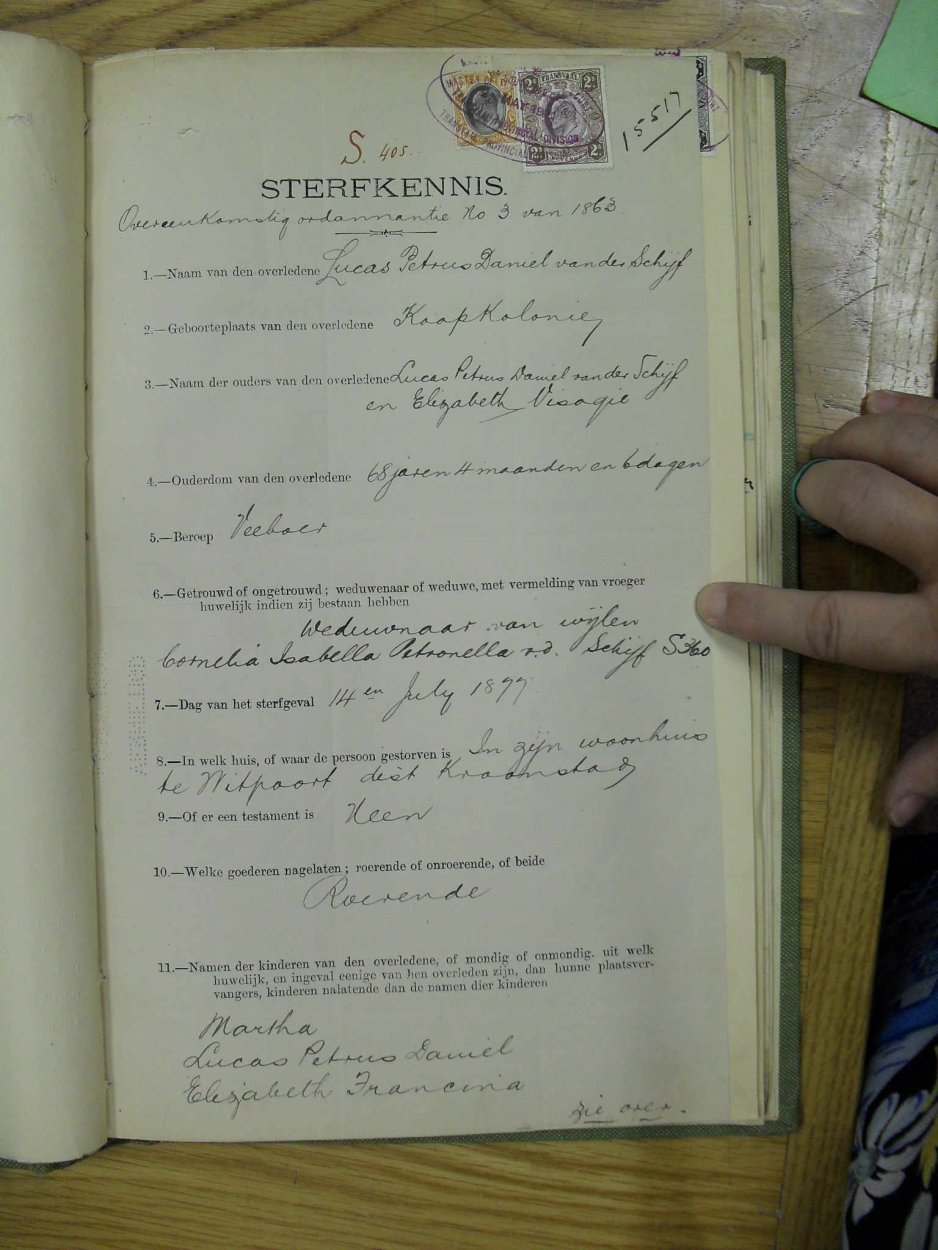 15517
TRANSVAAL
S. 405.
STERFKENNIS.
Overeenkomstig ordannantie No 3 van 1863
1.—Naam van den overledene Lucas Petrus Daniel van der Schijf
2.—Geboorteplaats van den overledene Kaap Kolonie
3.—Naam der ouders van den overledene Lucas Petrus Daniel van der Schijf
en Elizabeth Visagie
4.—Ouderdom van den overledene 68 jaren 4 maanden en 6 dagen
5.—Beroep Veeboer
6.—Getrouwd of ongetrouwd; weduwenaar of weduwe, met vermelding van vroeger
huwelijk indien zij bestaan hebben
Weduwnaar van wijlen
Cornelia Isabella Petronella v.d. Schijf S360
7.—Dag van het sterfgeval 14en July 1899
8.—In welk huis, of waar de persoon gestorven is In zijn woonhuis
te Witpoort dist Kroonstad
9.—Of er een testament is Neen
10.—Welke goederen nagelaten; roerende of onroerende, of beide
Roerende
11.—Namen der kinderen van den overledene, of mondig of onmondig. uit welk
huwelijk, en ingeval eenige van hen overleden zijn, dan hunne plaatsver-
vangers, kinderen nalatende dan de namen dier kinderen
Martha
Lucas Petrus Daniel
Elizabeth Francina
zie over.